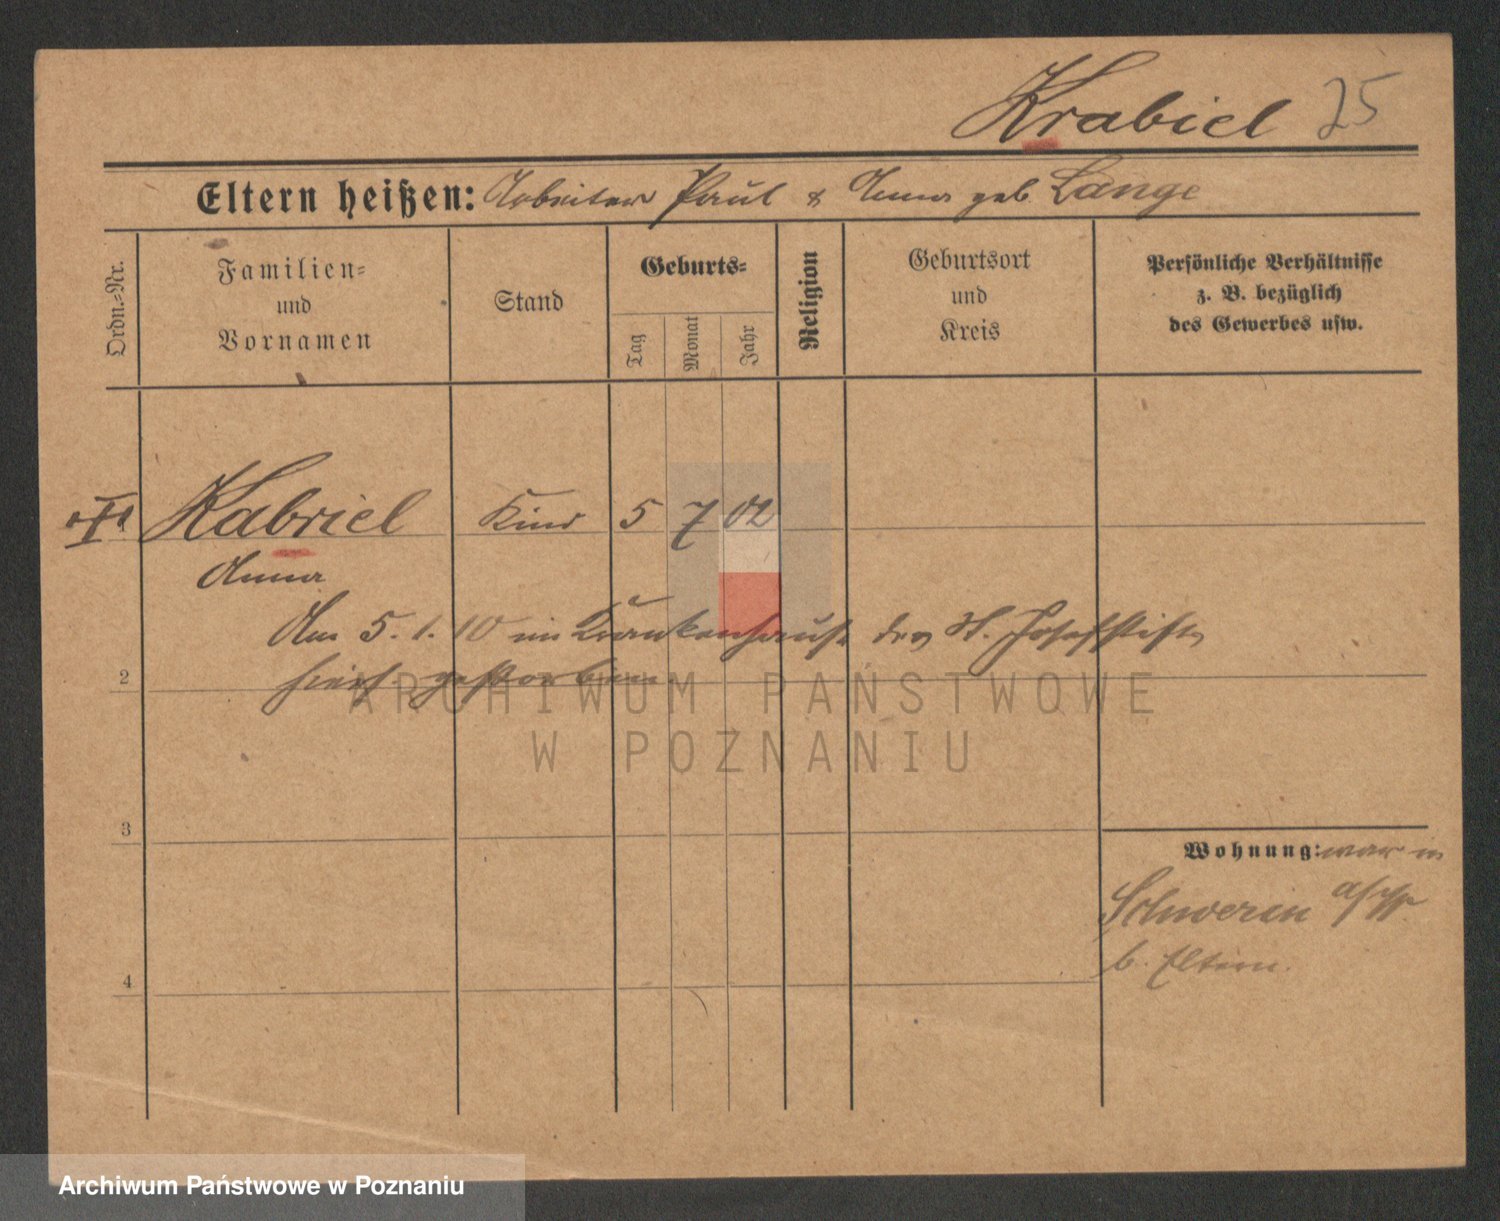 Krabiel 25
Eltern heißen: Arbeiter Paul & Anna geb Lange
Ordn.=Nr.
Familien=
und
Vornamen
Stand
Geburts=
Tag
Monat
Jahr
Religion
Geburtsort
und
Kreis
Persönliche Verhältnisse
z. B. bezüglich
des Gewerbes usw.
1 Kabriel Kind 5 7 02
Anna
Am 5. 1. 10 im Krankenhause des St. Josefstifts
2 hiers. gestorben.
ARCHIWUM PAŃSTWOWE
W POZNANIU
3
Wohnung: war in
Schwerin a/W.
b. Eltern.
4
Archiwum Państwowe w Poznaniu